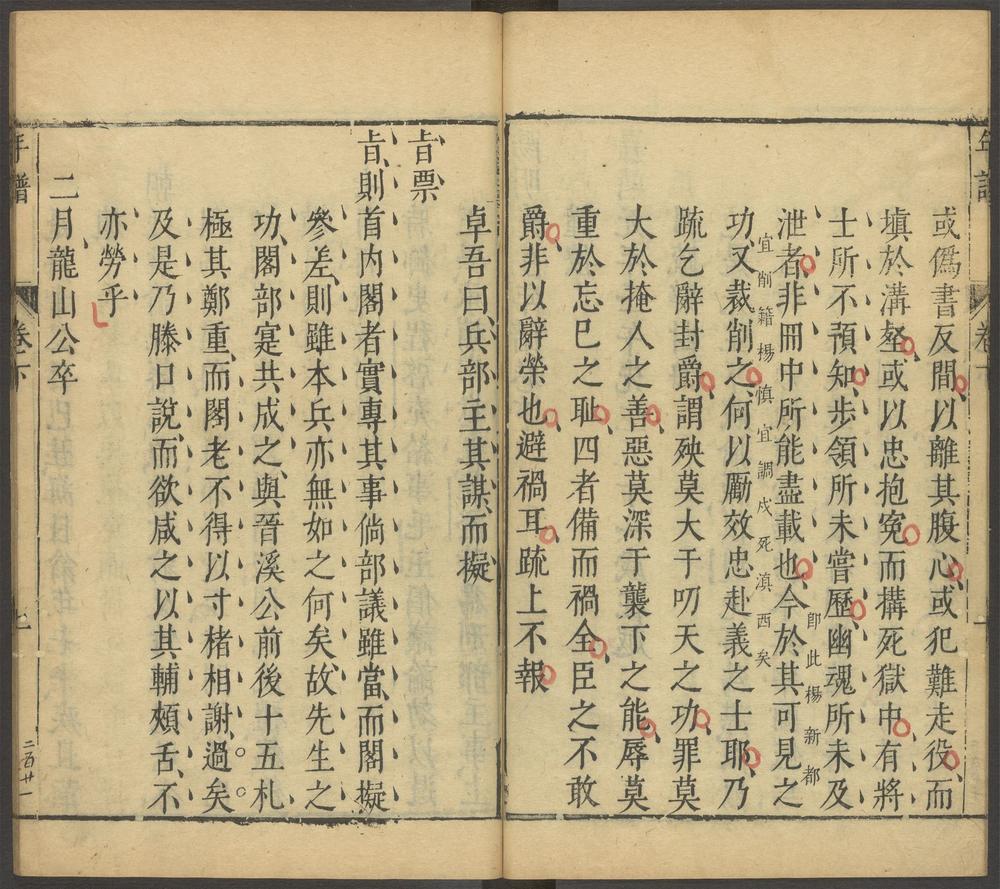 年譜 卷下
或偽書反間以離其腹心或犯難走役而
填於溝壑或以忠抱冤而搆死獄中有將
士所不預知步領所未嘗歷幽魂所未及
即此楊新都
泄者非冊中所能盡載也今於其可見之
宜削籍楊慎宜調戍死滇西矣
功又裁削之何以勵效忠赴義之士耶乃
疏乞辭封爵謂殃莫大于叨天之功罪莫
大於掩人之善惡莫深于襲下之能辱莫
重於忘已之耻四者備而禍全臣之不敢
爵非以辭榮也避禍耳疏上不報
卓吾曰兵部主其謀而擬
旨票
旨則首内閣者實專其事倘部議雖當而閣擬
參差則雖本兵亦無如之何矣故先生之
功閣部寔共成之與晉溪公前後十五札
極其鄭重而閣老不得以寸楮相謝過矣
及是乃滕口說而欲咸之以其輔頰舌不
亦勞乎
二月龍山公卒
年譜 卷下 二百廿一